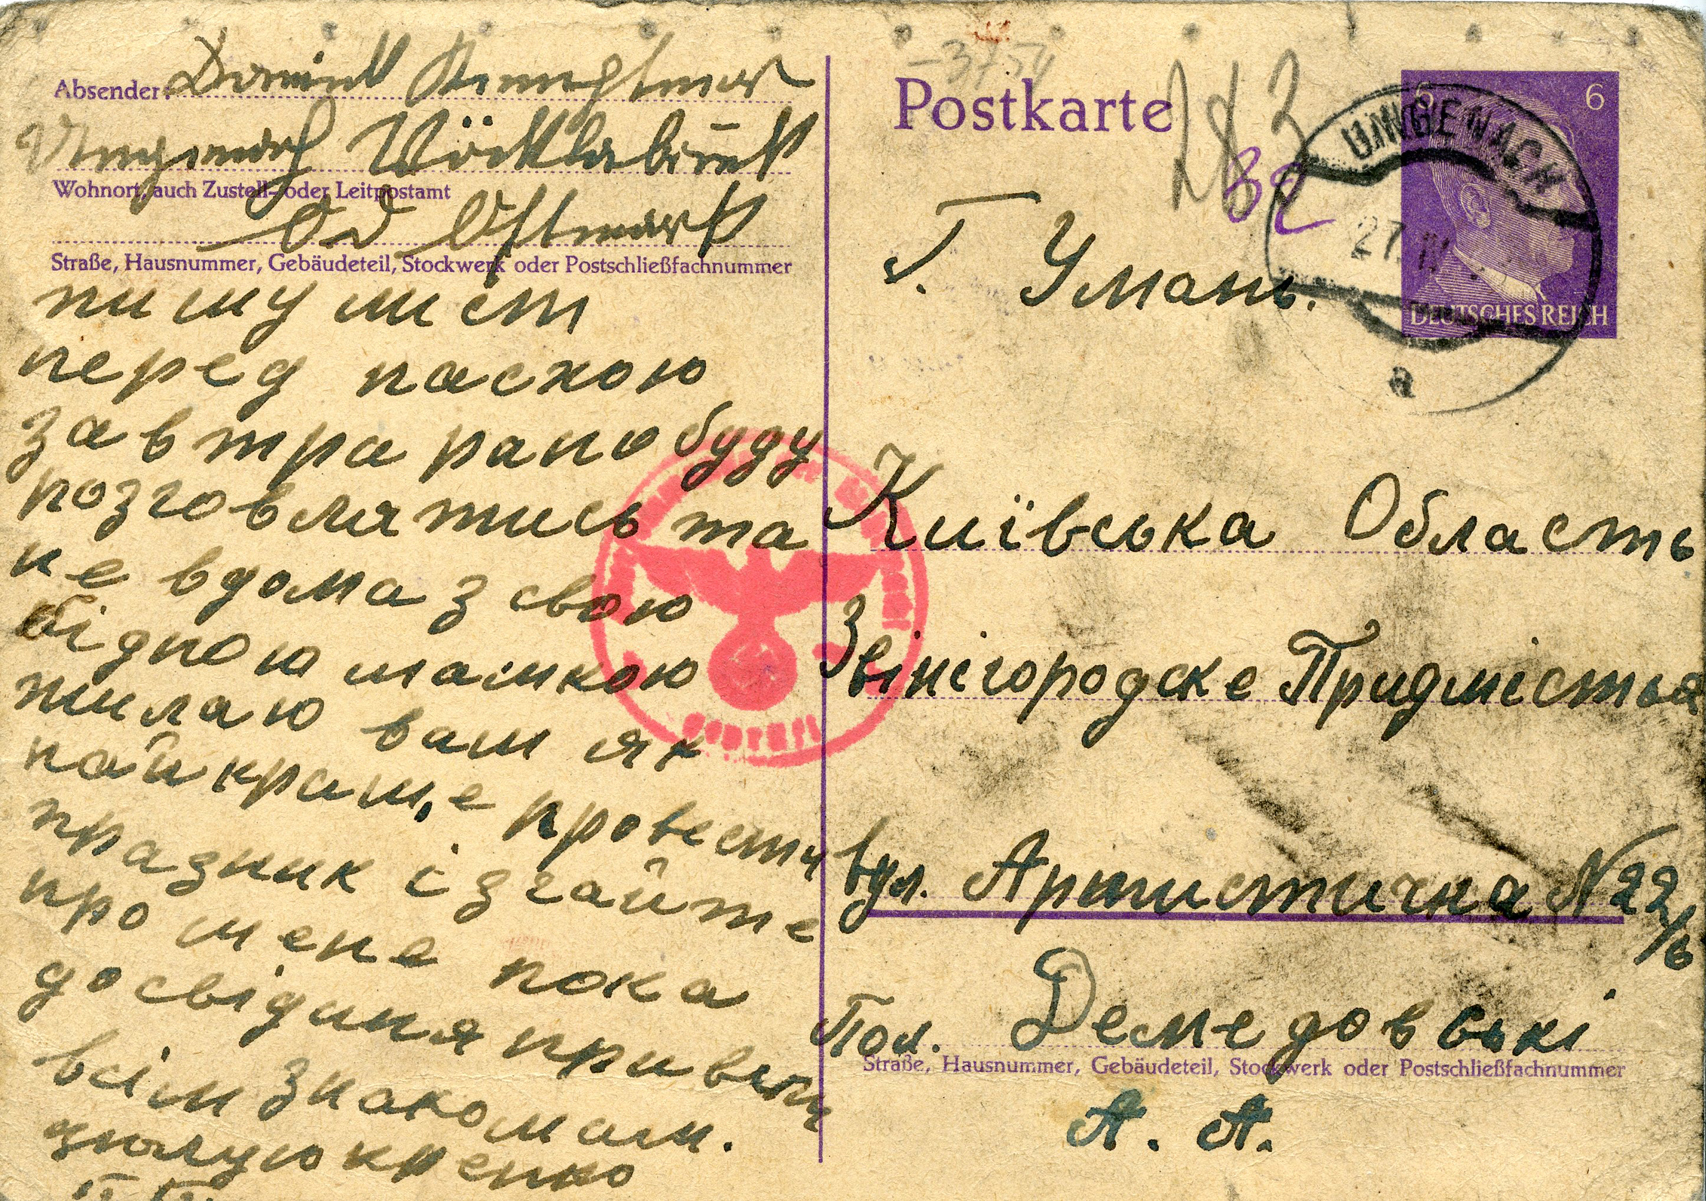 Absender: Dominik
Ungenach Vöcklabruck
Wohnort, auch Zustell- oder Leitpostamt
OD Ostmark
Straße, Hausnummer, Gebäudeteil, Stockwerk oder Postschließfachnummer
пишу лист
перед паскою
завтра рано буду
розговлятись та
не вдома з свою
бідною мамкою
жилаю вам як
найкраще провести
празник і згайте
про мене пока
досвіданя привет
всім знакомам.
цюлую кренко
Postkarte
282
32
6
UNGENACH
27. IV
a
DEUTSCHES REICH
Г. Умань.
Київська Область
Звінігородске Придмістья
вул. Артистична N 22/6
Пол. Демедовські
Straße, Hausnummer, Gebäudeteil, Stockwerk oder Postschließfachnummer
А. А.
geprüft